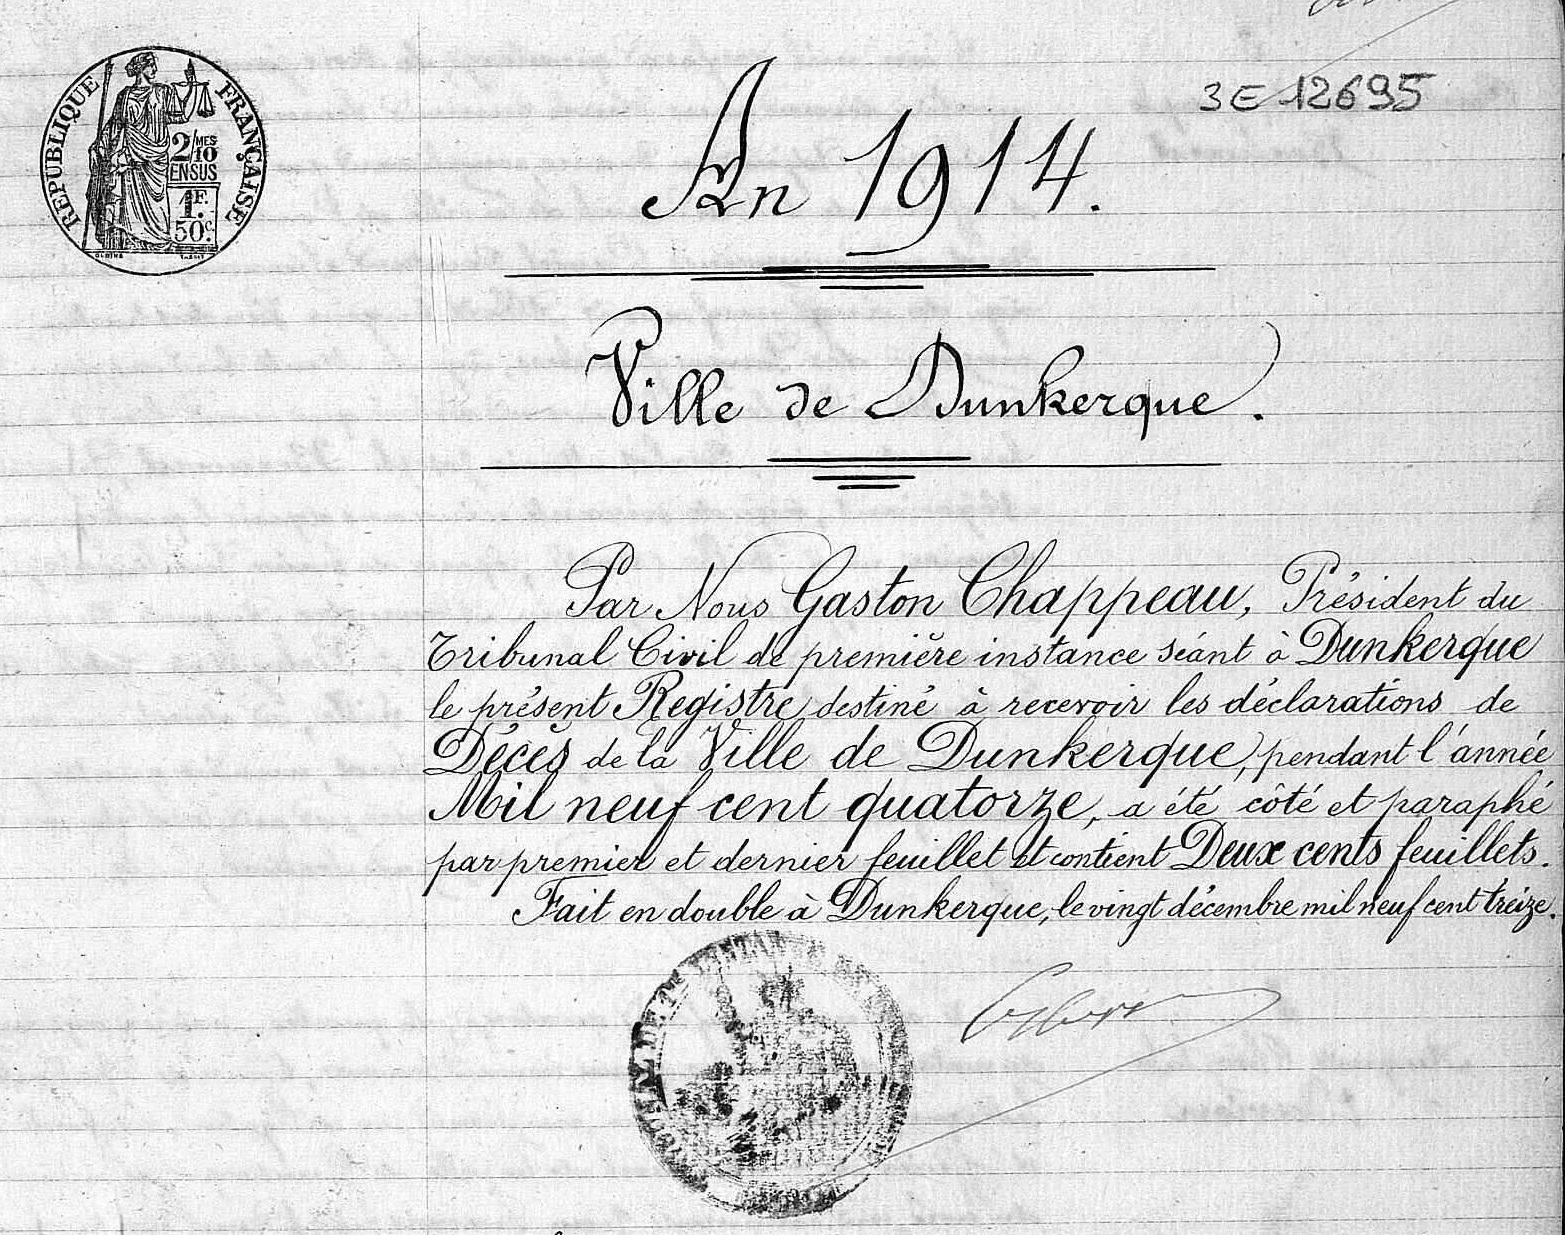 3 E 12695
RÉPUBLIQUE FRANÇAISE
2/10MES
EN SUS
1F.
50c.
An 1914.
Ville de Dunkerque.
Par Nous Gaston Chappeau, Président du
Tribunal Civil de première instance séant à Dunkerque
le présent Registre destiné à recevoir les déclarations de
Décès de la Ville de Dunkerque, pendant l'année
Mil neuf cent quatorze, a été côté et paraphé
par premier et dernier feuillet et contient Deux cents feuillets.
Fait en double à Dunkerque, le vingt décembre mil neuf cent treize.